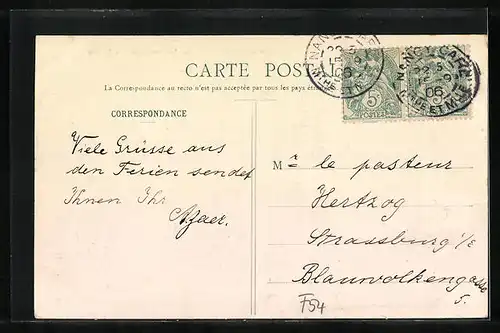 CARTE POSTALE
La Correspondance au recto n'est pas acceptée par tous les pays
CORRESPONDANCE
Viele Grüsse aus
den Ferien sendet
Ihnen Ihr
M r le pasteur
Hertzog
Strassburg i/E
Blauwolkengasse
5.
F54
NANCY
06
NANCY
06
5
POSTES